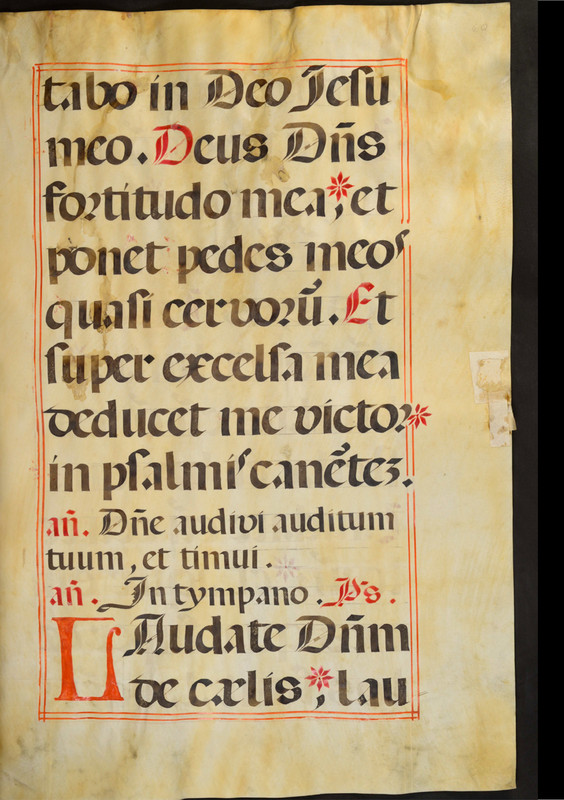 tabo in Deo Jesu
meo. Deus Dñs
fortitudo mea *; et
ponet pedes meos
quasi cervorũ. Et
super excelsa mea
deducet me victor *
in psalmis canẽtez.
añ. Dñe audivi auditum
tuum, et timui.
añ. In tympano. Ps.
LAudate Dñm
de cælis *; lau